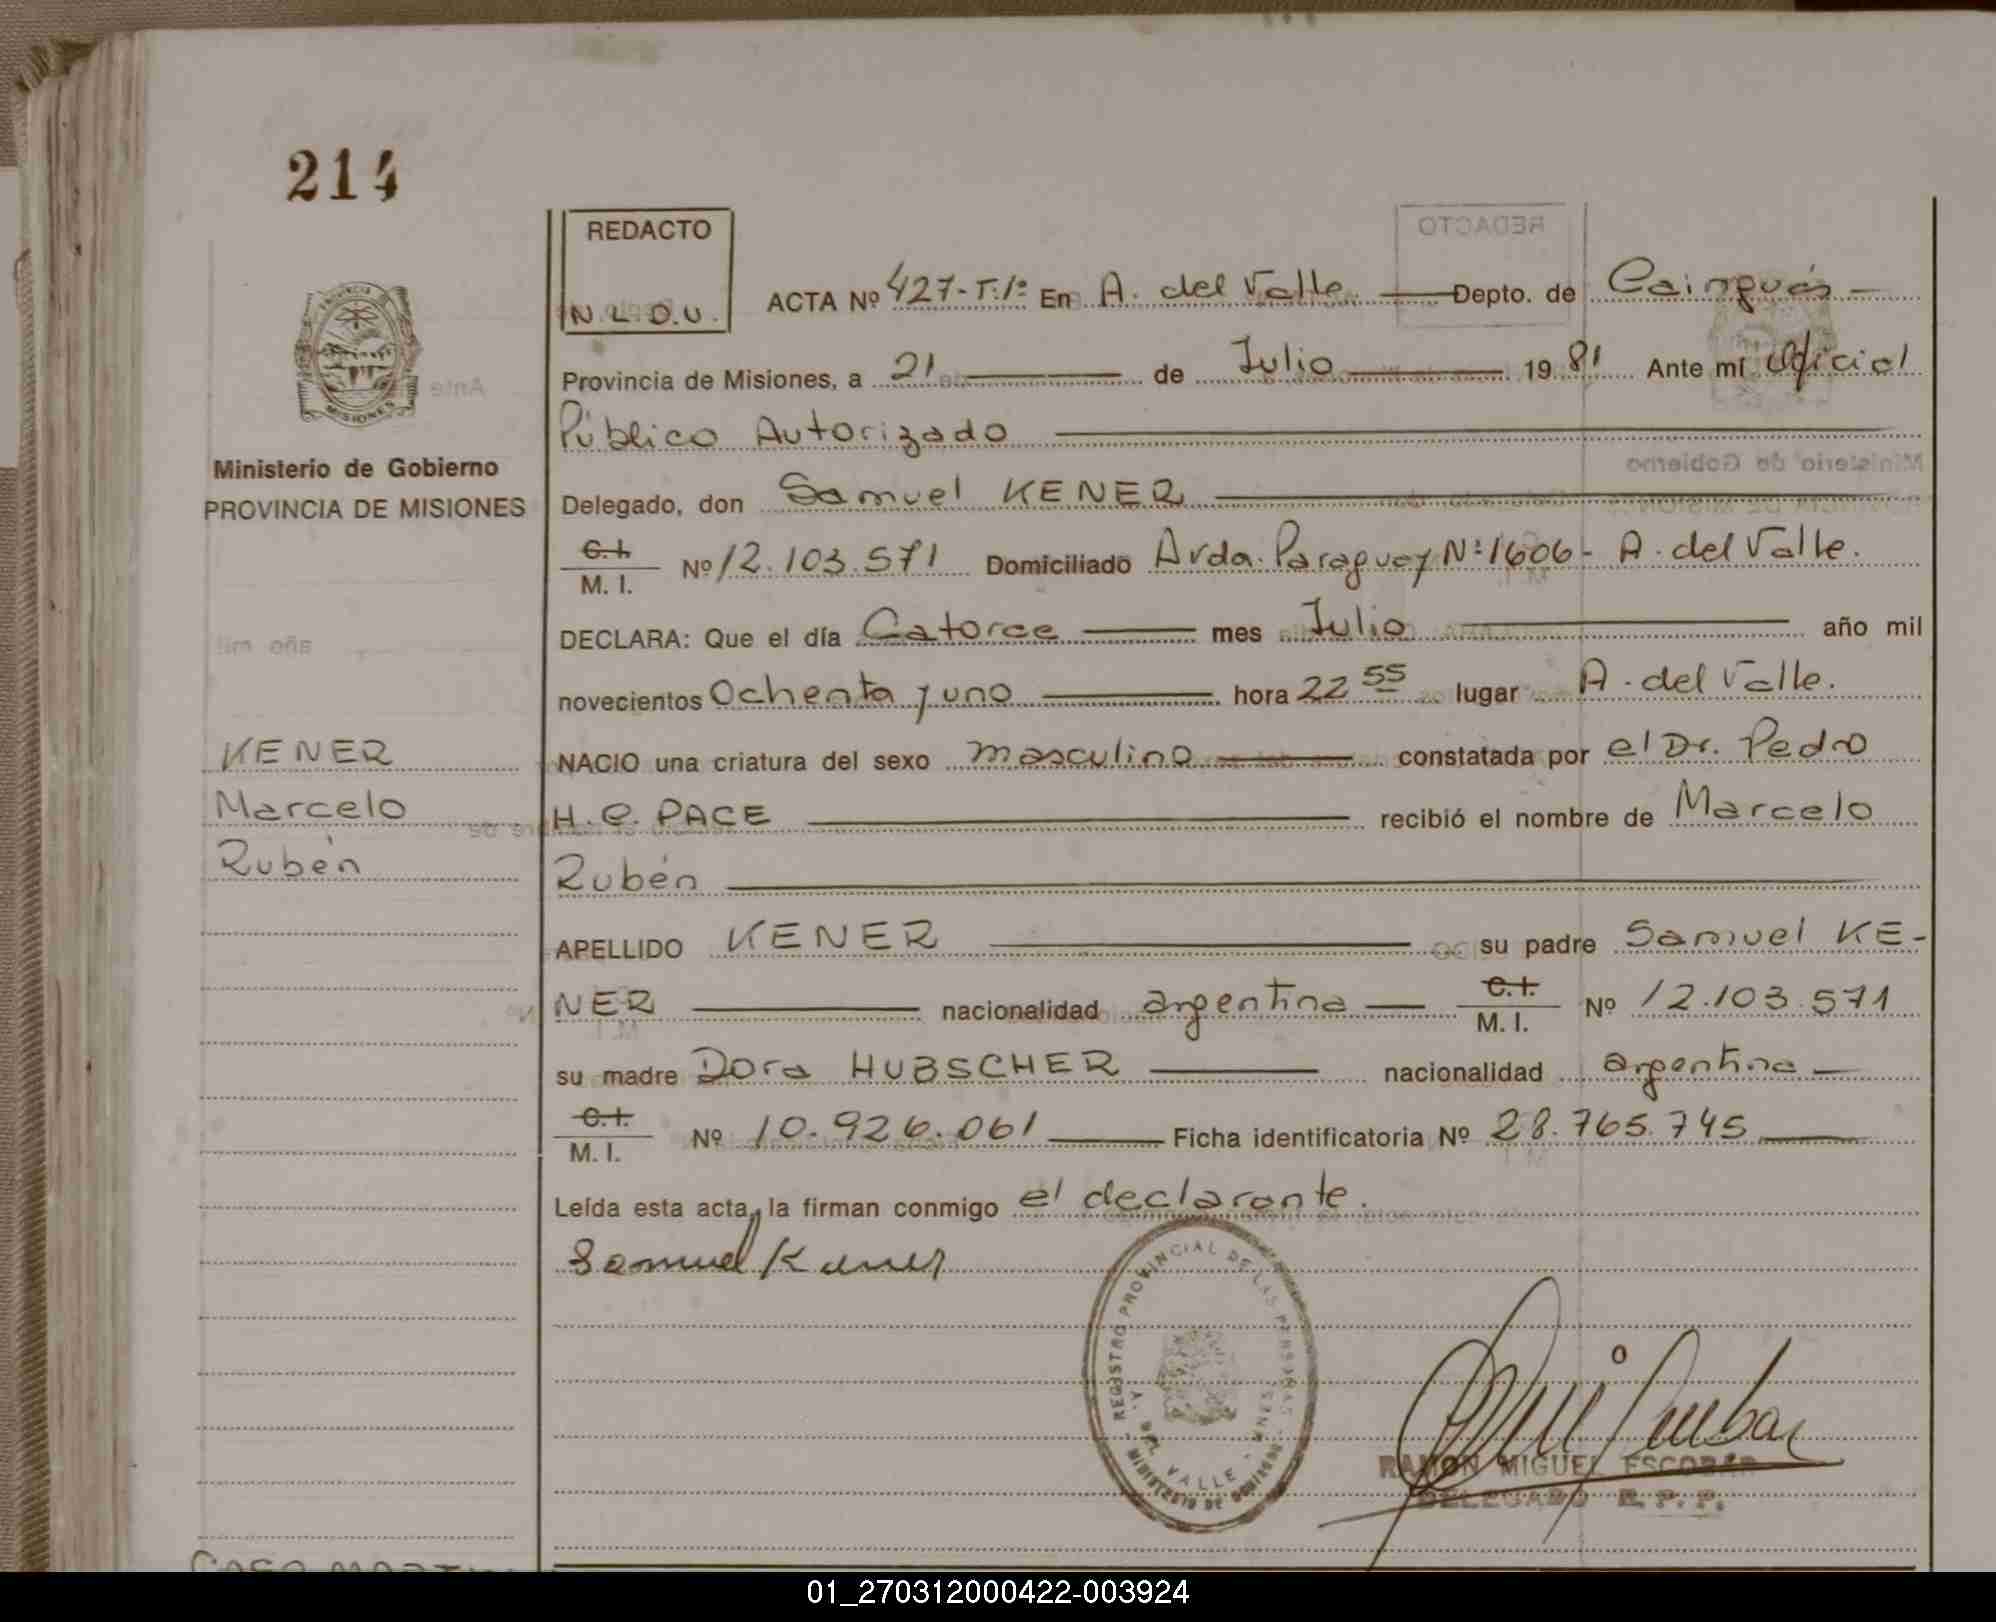 214
REDACTO
N.L.D.U.
ACTA Nº 427-T.1º En A. del Valle. Depto. de Cainguás
PROVINCIA DE
MISIONES
Ministerio de Gobierno
PROVINCIA DE MISIONES
Provincia de Misiones, a 21 de Julio 1981 Ante mí Oficial
Público Autorizado
Delegado, don Samuel KENER
C.I.
M. I. Nº 12.103.571 Domiciliado Avda. Paraguay Nº 1606 - A. del Valle.
DECLARA: Que el día Catorce mes Julio año mil
novecientos Ochenta y uno hora 22 55 lugar A. del Valle.
KENER
Marcelo
Rubén
NACIO una criatura del sexo masculino constatada por el Dr. Pedro
H. C. PACE recibió el nombre de Marcelo
Rubén
APELLIDO KENER su padre Samuel KE-
NER nacionalidad argentina C.I. M. I. Nº 12.103.571
su madre Dora HUBSCHER nacionalidad argentina
C.I.
M. I. Nº 10.926.061 Ficha identificatoria Nº 28.765.745
Leída esta acta, la firman conmigo el declarante.
Samuel Kener
REGISTRO PROVINCIAL DE LAS PERSONAS
A. DEL VALLE - MNES.
MINISTERIO DE GOBIERNO
RAMON MIGUEL ESCOBAR
DELEGADO R. P. P.
01_270312000422-003924